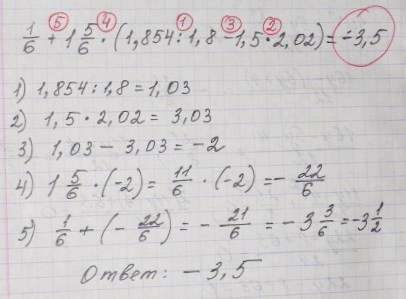 ⑤ ④ ① ③ ②
1/6 + 1 5/6 · (1,854 : 1,8 − 1,5 · 2,02) = −3,5
1) 1,854 : 1,8 = 1,03
2) 1,5 · 2,02 = 3,03
3) 1,03 − 3,03 = −2
4) 1 5/6 · (−2) = 11/6 · (−2) = − 22/6
5) 1/6 + (− 22/6) = − 21/6 = − 3 3/6 = −3 1/2
Ответ: − 3,5